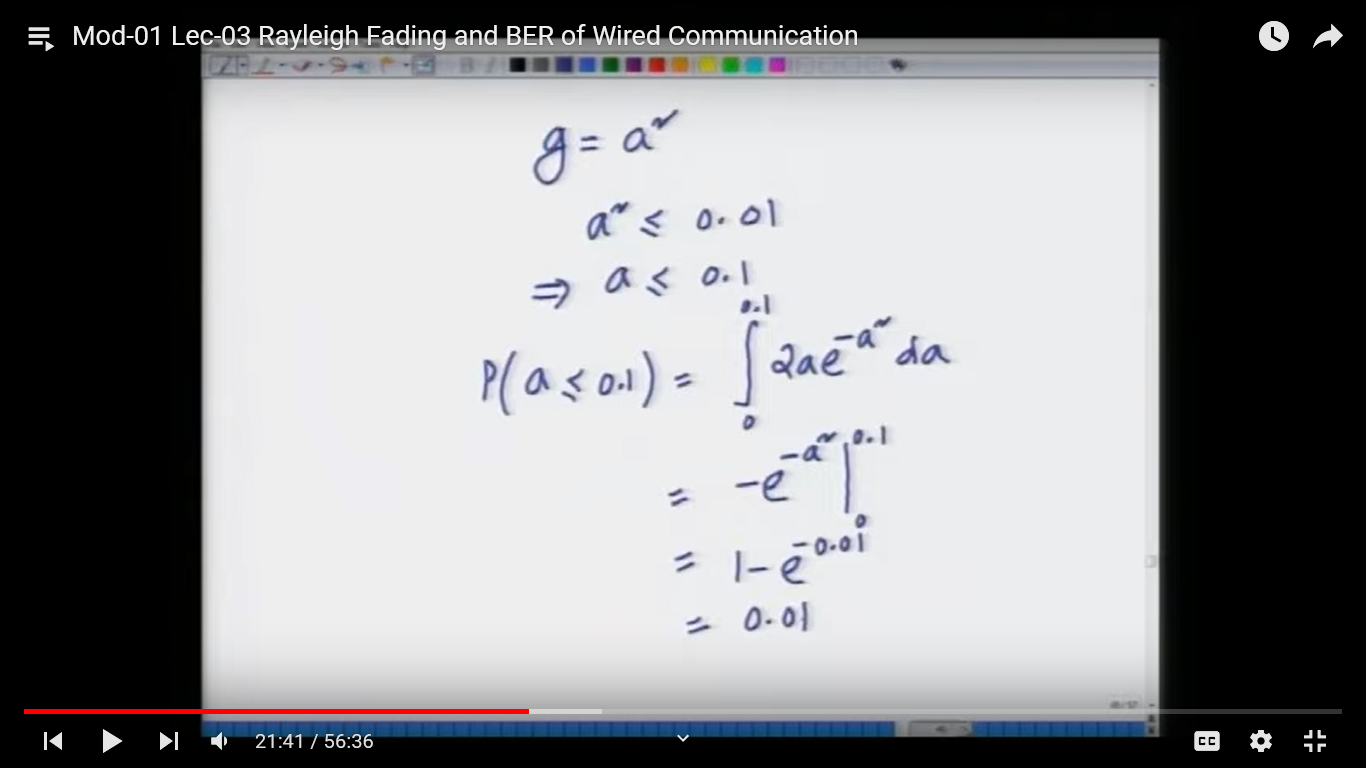 Mod-01 Lec-03 Rayleigh Fading and BER of Wired Communication
g = a²
a² ≤ 0.01
⇒ a ≤ 0.1
P(a ≤ 0.1) = ∫₀^0.1 2ae^-a² da
= -e^-a² |₀^0.1
= 1-e^-0.01
= 0.01
21:41 / 56:36
CC